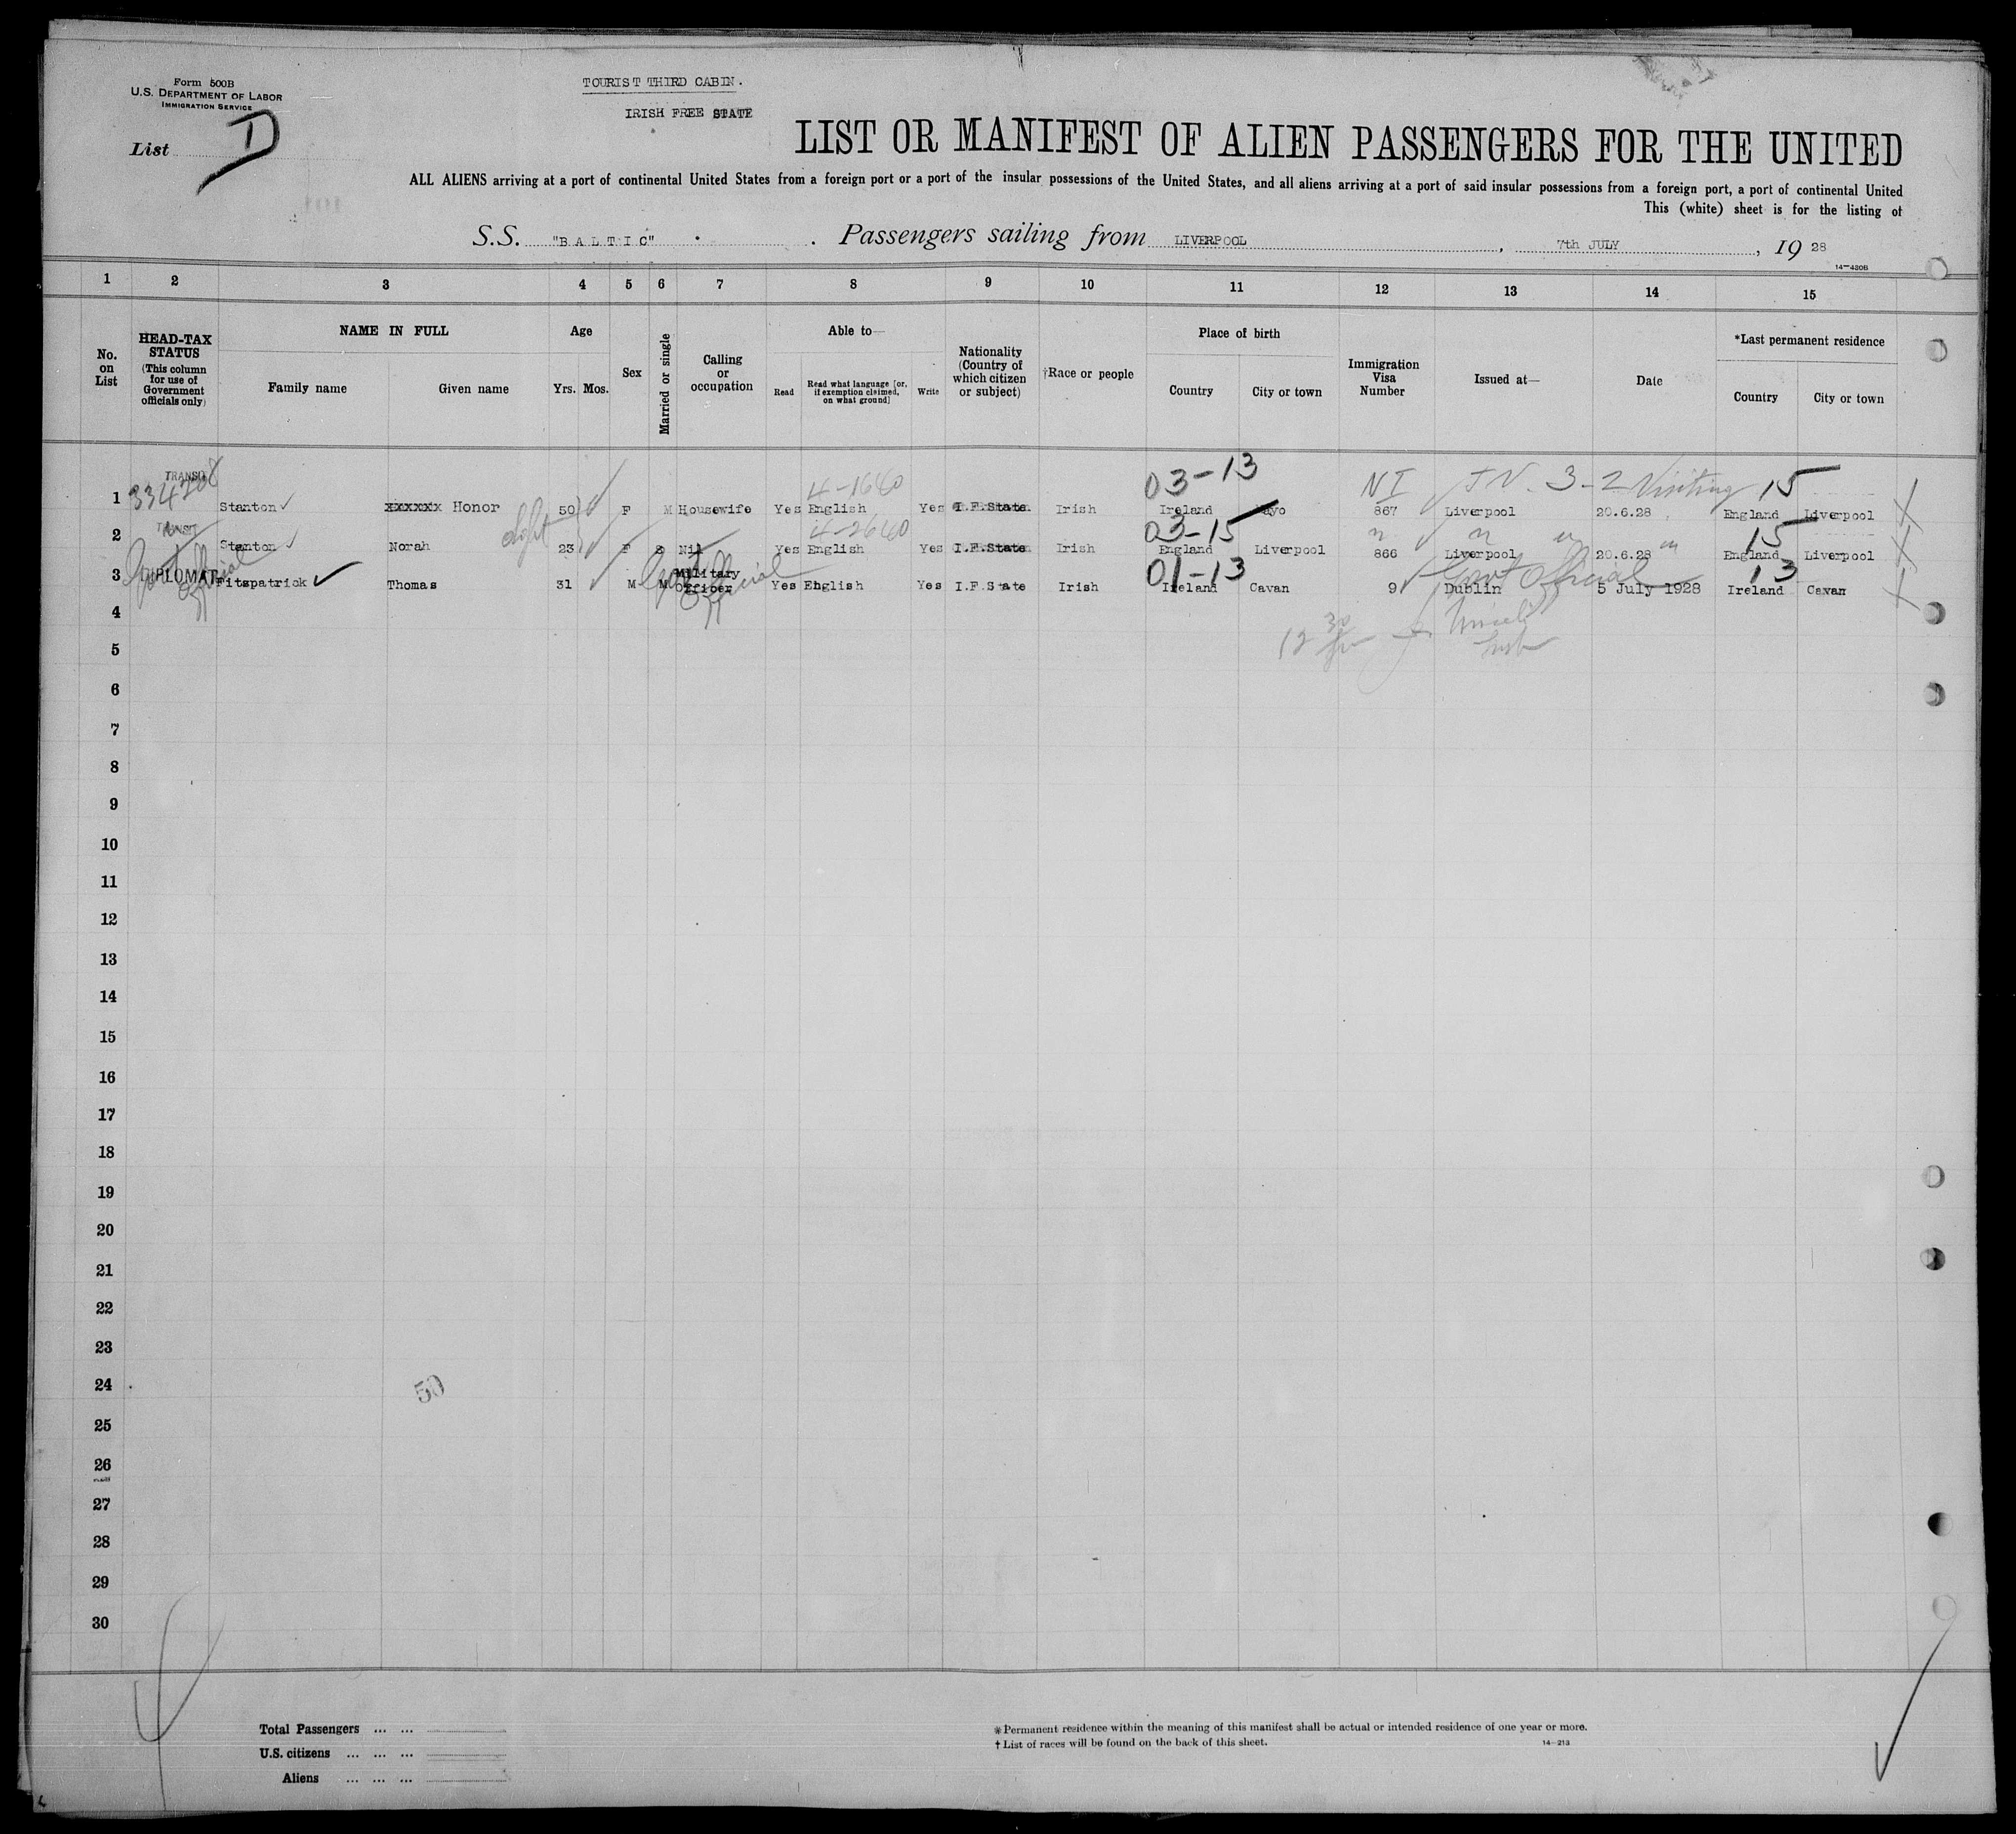 Form 500B
U.S. DEPARTMENT OF LABOR
IMMIGRATION SERVICE
List D
TOURIST THIRD CABIN.
IRISH FREE STATE
LIST OR MANIFEST OF ALIEN PASSENGERS FOR THE UNITED
ALL ALIENS arriving at a port of continental United States from a foreign port or a port of the insular possessions of the United States, and all aliens arriving at a port of said insular possessions from a foreign port, a port of continental United
This (white) sheet is for the listing of
S.S. "BALTIC" . Passengers sailing from LIVERPOOL , 7th JULY , 19 28
14—430B
1 2 3 4 5 6 7 8 9 10 11 12 13 14 15
No. on List
HEAD-TAX STATUS (This column for use of Government officials only)
NAME IN FULL
Family name Given name
Age
Yrs. Mos.
Sex
Married or single
Calling or occupation
Able to—
Read Read what language [or, if exemption claimed, on what ground] Write
Nationality (Country of which citizen or subject)
†Race or people
Place of birth
Country City or town
Immigration Visa Number
Issued at—
Date
*Last permanent residence
Country City or town
TRANSIT 4-1640 03-13 NI 3-2 Visiting 15
1 Stanton xxxxxx Honor 50 F M Housewife Yes English Yes I.F.State Irish Ireland ayo 867 Liverpool 20.6.28 England Liverpool
TRANSIT 4-2640 03-15 " " " 15
2 Stanton Norah 23 F S Nil Yes English Yes I.F.State Irish England Liverpool 866 Liverpool 20.6.28 England Liverpool
Govt Official 01-13 Govt Official 13
3 DIPLOMAT Fitspatrick Thomas 31 M M Military Officer Yes English Yes I.F.State Irish Ireland Cavan 9 Dublin 5 July 1928 Ireland Cavan
4
12 30
5
6
7
8
9
10
11
12
13
14
15
16
17
18
19
20
21
22
23
24
50
25
26
27
28
29
30
Total Passengers ... ...
U.S. citizens ... ... ...
Aliens ... ... ...
* Permanent residence within the meaning of this manifest shall be actual or intended residence of one year or more.
† List of races will be found on the back of this sheet.
14—213